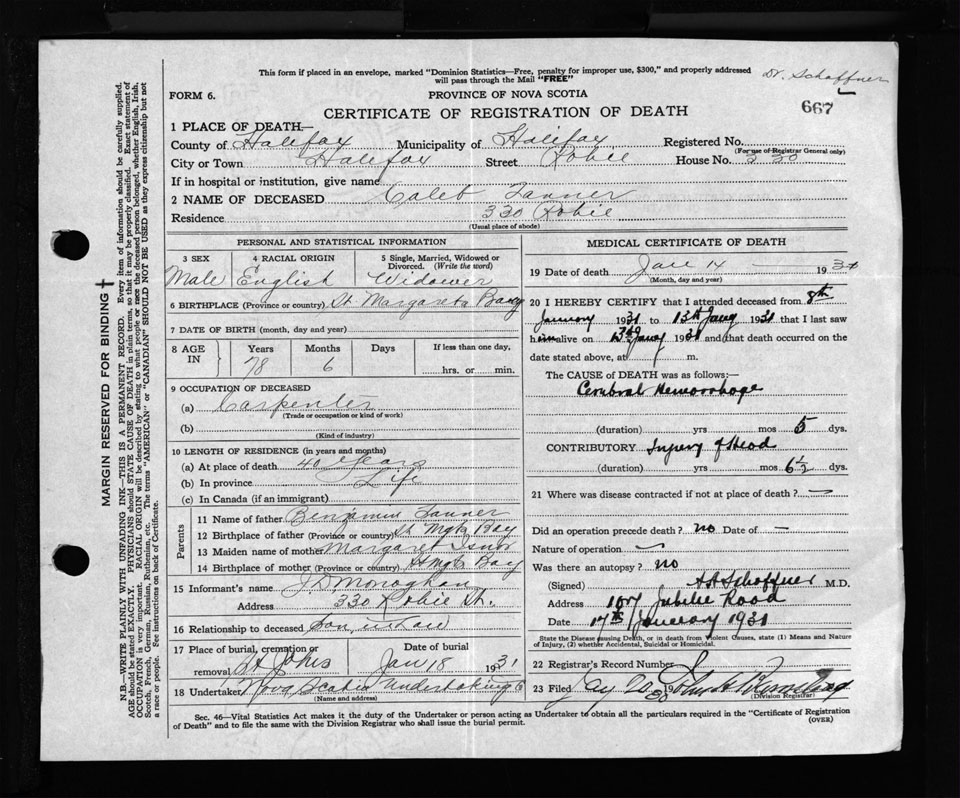 This form if placed in an envelope, marked "Dominion Statistics—Free, penalty for improper use, $300," and properly addressed
will pass through the Mail "FREE"
Dr. Schaffner
FORM 6.
PROVINCE OF NOVA SCOTIA
667
CERTIFICATE OF REGISTRATION OF DEATH
1 PLACE OF DEATH—
County of Halifax Municipality of Halifax Registered No.
(For use of Registrar General only)
City or Town Halifax Street Robie House No. 330
If in hospital or institution, give name
2 NAME OF DECEASED Caleb Tanner
Residence 330 Robie
(Usual place of abode)
PERSONAL AND STATISTICAL INFORMATION
3 SEX 4 RACIAL ORIGIN 5 Single, Married, Widowed or Divorced. (Write the word)
Male English Widower
6 BIRTHPLACE (Province or country) St. Margarets Bay
7 DATE OF BIRTH (month, day and year)
8 AGE IN Years Months Days If less than one day,
78 6 hrs. or min.
9 OCCUPATION OF DECEASED
(a) Carpenter
(Trade or occupation or kind of work)
(b)
(Kind of industry)
10 LENGTH OF RESIDENCE (in years and months)
(a) At place of death 40 years
(b) In province Life
(c) In Canada (if an immigrant)
Parents
11 Name of father Benjamin Tanner
12 Birthplace of father (Province or country) St Mgts Bay
13 Maiden name of mother Margaret Isnor
14 Birthplace of mother (Province or country) St Mgts Bay
15 Informant's name J D Monaghan
Address 330 Robie St.
16 Relationship to deceased Son in law
17 Place of burial, cremation or removal Date of burial
St Johns Jan 18 1931
18 Undertaker Nova Scotia Undertaking Co
(Name and address)
MEDICAL CERTIFICATE OF DEATH
19 Date of death Jan 14 — 1931
(Month, day and year)
20 I HEREBY CERTIFY that I attended deceased from 8th
January 1931 to 13th Jany 1931 that I last saw
him alive on 13th Jany 1931 and that death occurred on the
date stated above, at m.
The CAUSE OF DEATH was as follows:—
Cerebral Hemorrhage
(duration) yrs mos 5 dys.
CONTRIBUTORY Injury of Head
(duration) yrs mos 6½ dys.
21 Where was disease contracted if not at place of death? —
Did an operation precede death? no Date of —
Nature of operation —
Was there an autopsy? no
(Signed) Schaffner M.D.
Address 107 Jubilee Road
Date 17th January 1931
State the Disease causing Death, or in death from Violent Causes, state (1) Means and Nature
of Injury, (2) whether Accidental, Suicidal or Homicidal.
22 Registrar's Record Number
23 Filed Jany 20 19
(Division Registrar)
Sec. 46—Vital Statistics Act makes it the duty of the Undertaker or person acting as Undertaker to obtain all the particulars required in the "Certificate of Registration
of Death" and to file the same with the Division Registrar who shall issue the burial permit. (OVER)
MARGIN RESERVED FOR BINDING
N.B.—WRITE PLAINLY WITH UNFADING INK—THIS IS A PERMANENT RECORD. Every item of information should be carefully supplied.
AGE should be stated EXACTLY. PHYSICIANS should STATE CAUSE OF DEATH in plain terms, so that it may be properly classified. Exact statement of
OCCUPATION is very important. RACIAL ORIGIN will be described by stating to what people or race the deceased person belonged, whether English, Irish,
Scotch, French, German, Russian, Ruthenian, etc. The terms "AMERICAN" or "CANADIAN" SHOULD NOT BE USED as they express citizenship but not
a race or people. See instructions on back of Certificate.